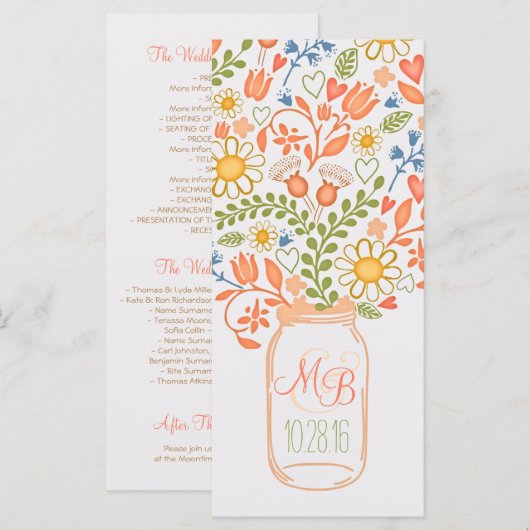 The Wedding
– PRE
More inform
More inform
– LIGHTING OF
– SEATING OF
– PROCE
More inform
– TITL
– EXCHANG
– EXCHANG
– ANNOUNCEMEN
– PRESENTATION OF T
– RECES
The Wedd
– Thomas & Lyda Miller
– Kate & Ron Richardson
– Name Surname
– Terassa Moore,
Sofia Collin –
– Name Surname
– Carl Johnston,
Benjamin Surnam
– Rita Surnam
– Thomas Atkins
After Th
Please join us
at the Moontime
M&B
10.28.16